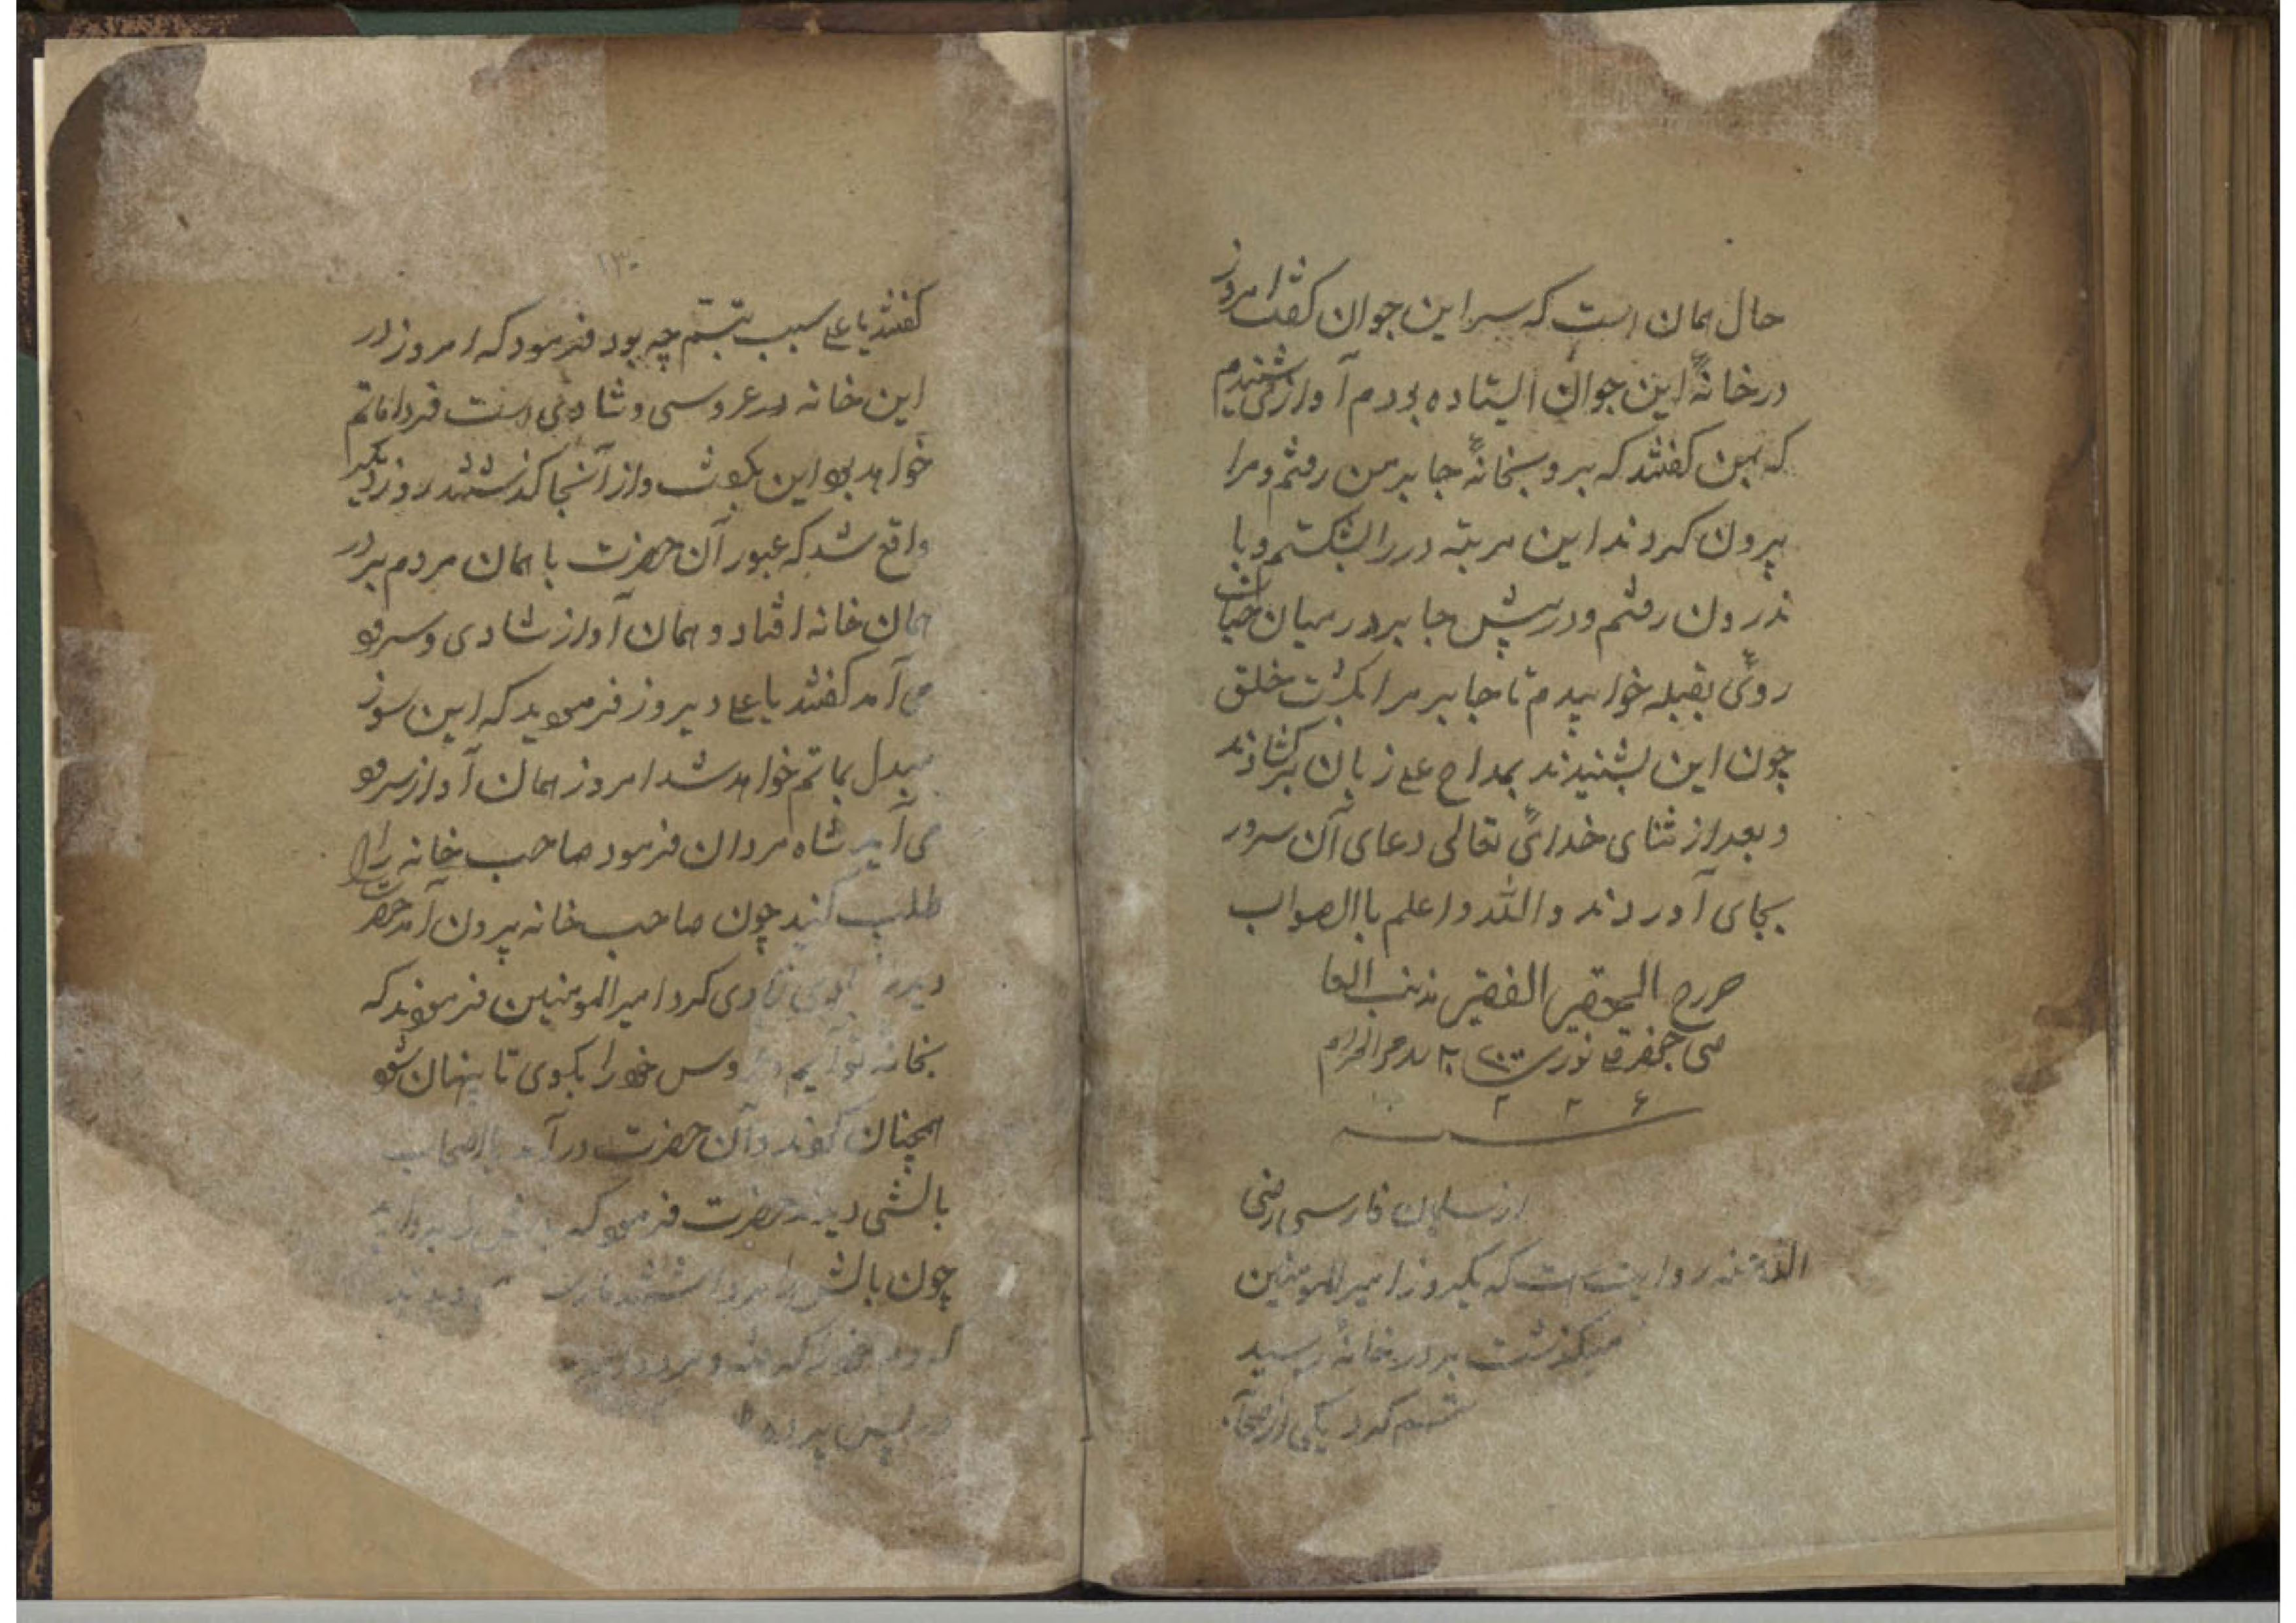 حال همان است که سر این جوان گفت امروز
در خانهٔ این جوان ایستاده بودم آواز می شنیدم
که بمن گفتند که برو بخانهٔ جابر من رفتم و مرا
بیرون کردند این مرتبه در را بشکستم و با
ندرون رفتم و در پیش جابر در میان خیابان
روئی بقبله خوابیدم تا جابر مرا بکشت خلق
چون این بشنیدند بمداح علی زبان برکشادند
و بعد از ثنای خدائی تعالی دعای آن سرور
بجای آوردند والله و اعلم باالصواب
حرره الحقیر الفقیر مذنب العا
صی جعفر قلی
از سلمان فارسی رضی
الله عنه روایت است که یکروز امیرالمومنین
میگذشت بر در خانهٔ رسید
تبسم کرد یکی از
۱۳۰
گفتند یا علی سبب تبسم چه بود فرمود که امروز در
این خانه در عروسی و شادی است فردا ماتم
خواهد بود این بگفت و از آنجا گذشتند روز دیگر
واقع شد که عبور آن حضرت با همان مردم بر در
همان خانه افتاد و همان آواز شادی و سرود
می آمد گفتند یا علی دیروز فرمودید که این سوز
مبدل بماتم خواهد شد امروز همان آواز سرود
می آید شاه مردان فرمود صاحب خانه را
طلب کنید چون صاحب خانه بیرون آمد حضرت
دید کرد امیرالمومنین فرمودند که
بخانه تو آیم عروس خود را بگوی تا پنهان شود
همچنان کردند و آن حضرت در آمد با اصحاب
بالشی دیدند حضرت فرمود که
چون بالش را برداشتند
که
در پس پرده